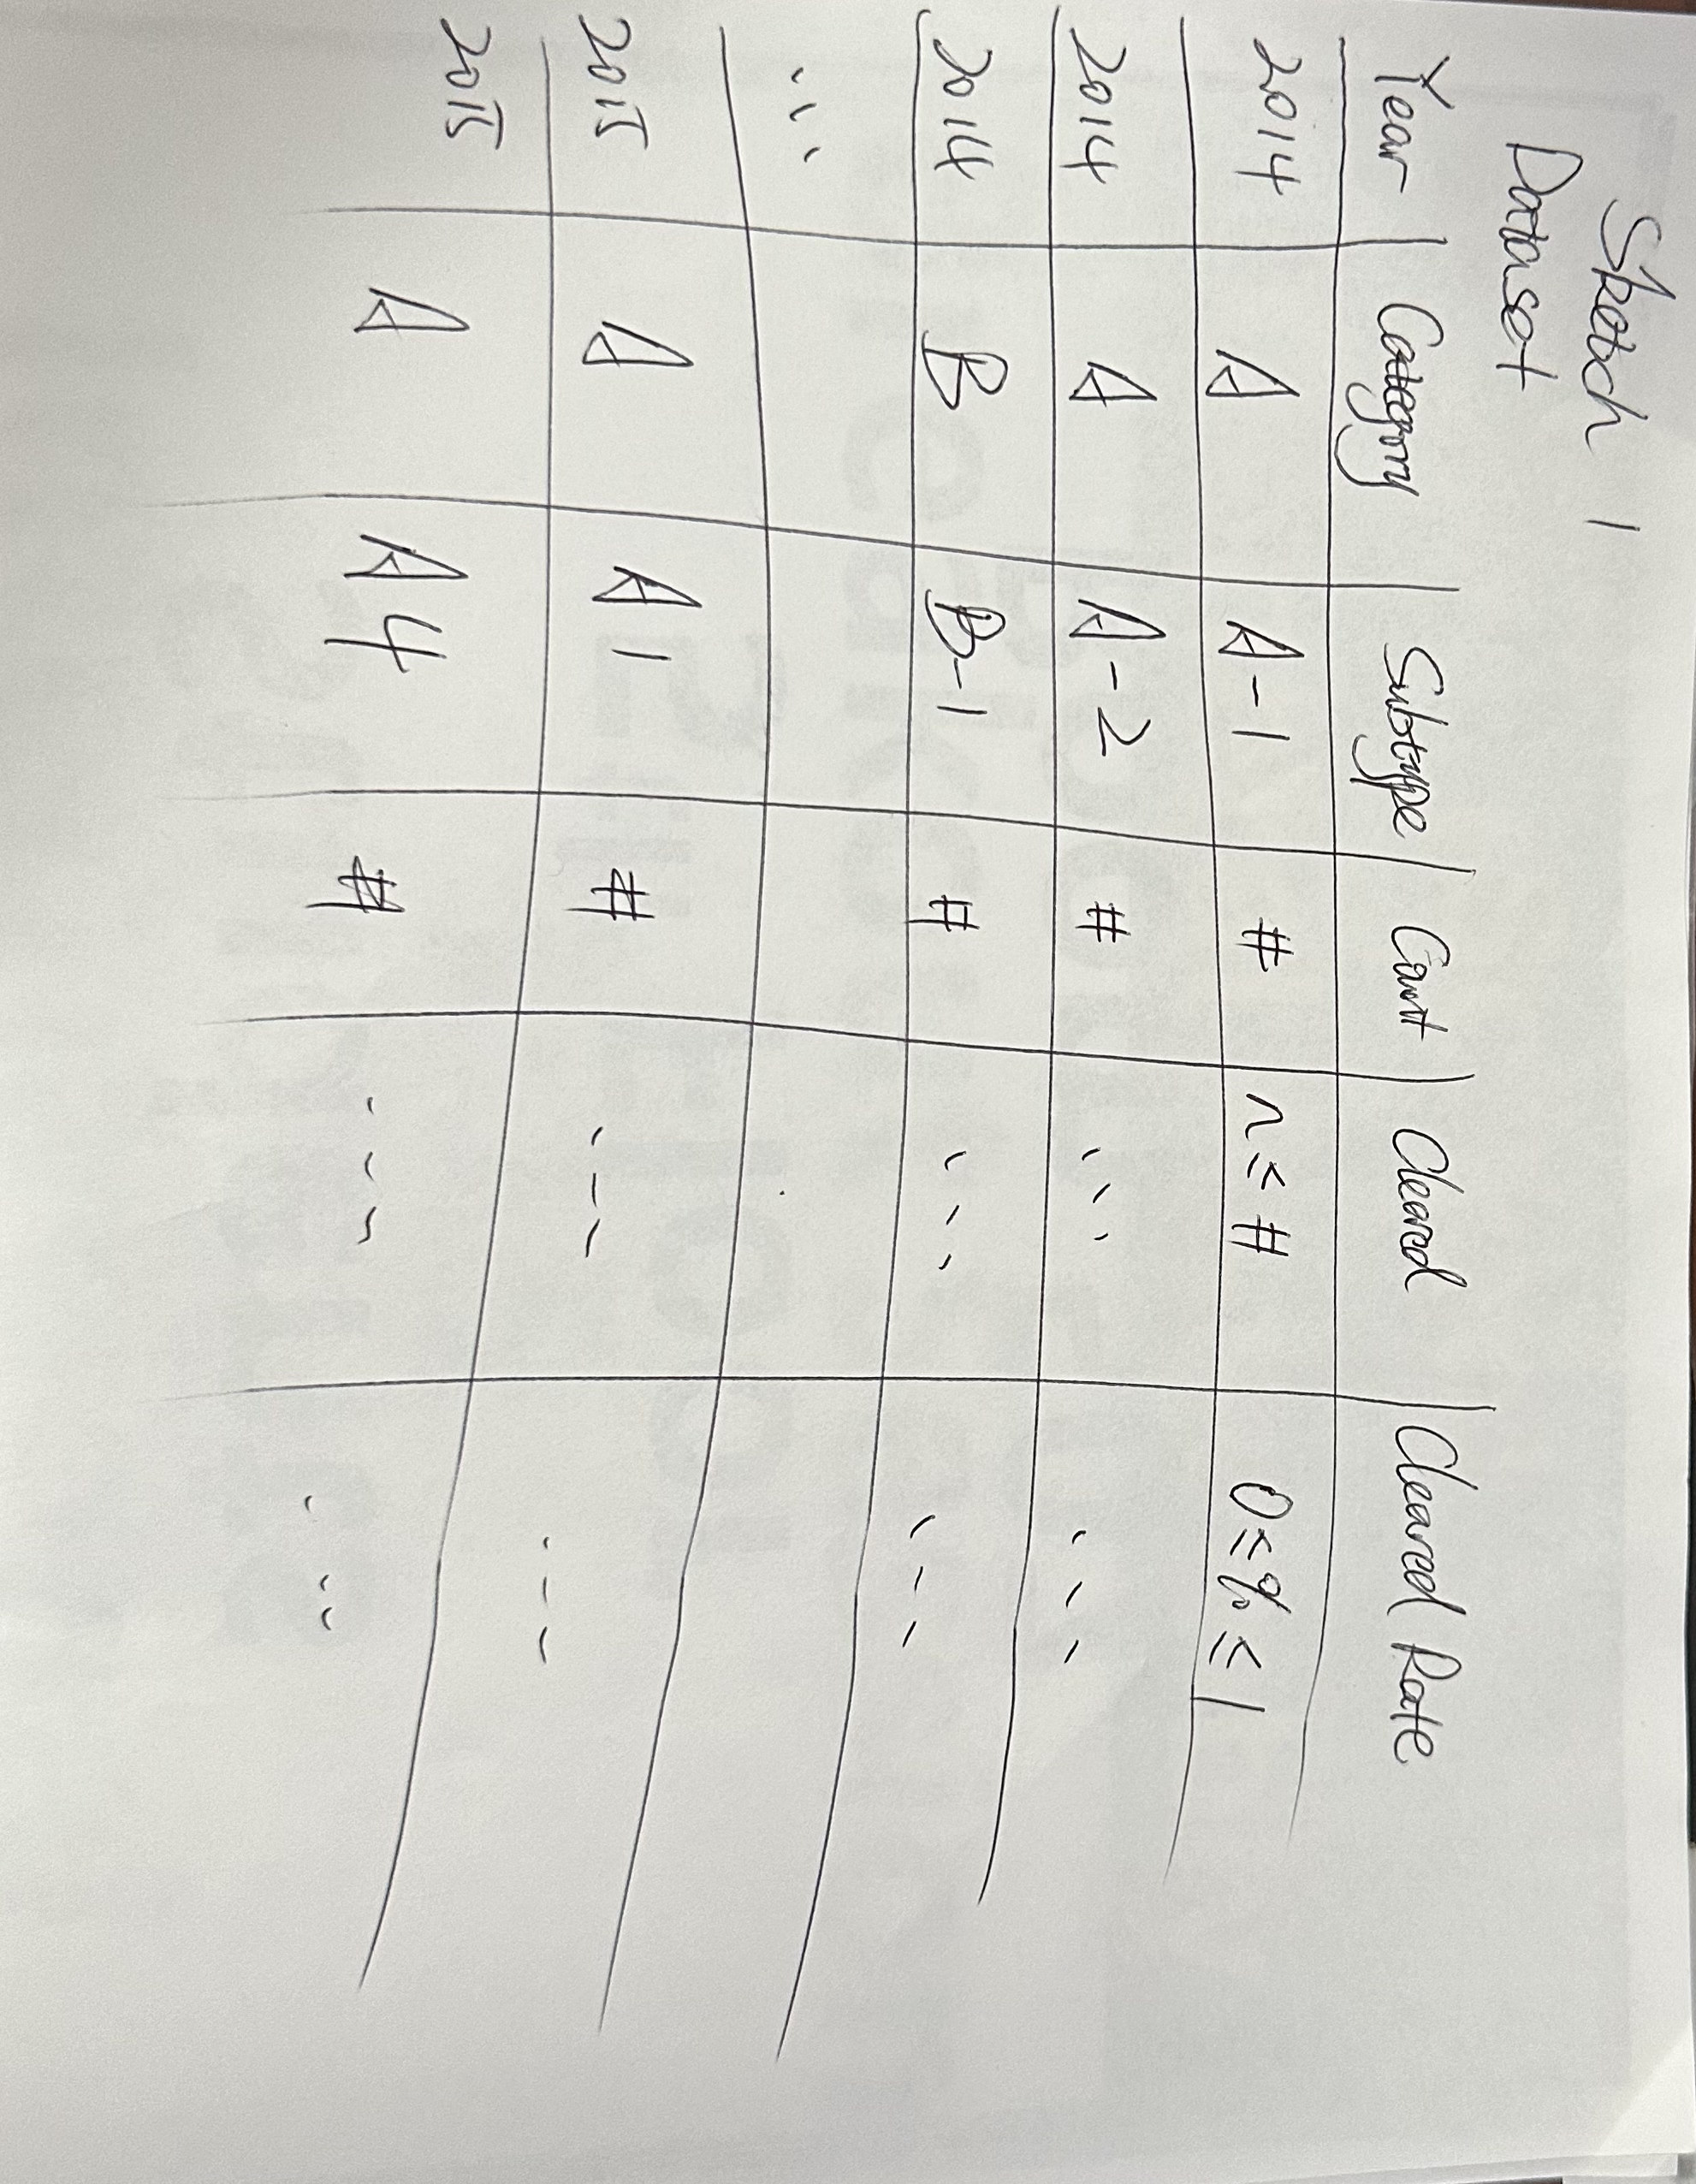 Sketch 1
Dataset
Year Category Subtype Count Cleared Cleared Rate
2014 A A-1 # n ≤ # 0 ≤ % ≤ 1
2014 A A-2 # ... ...
2014 B B-1 # ... ...
...
2015 A A1 # ... ...
2015 A A4 # ... ...